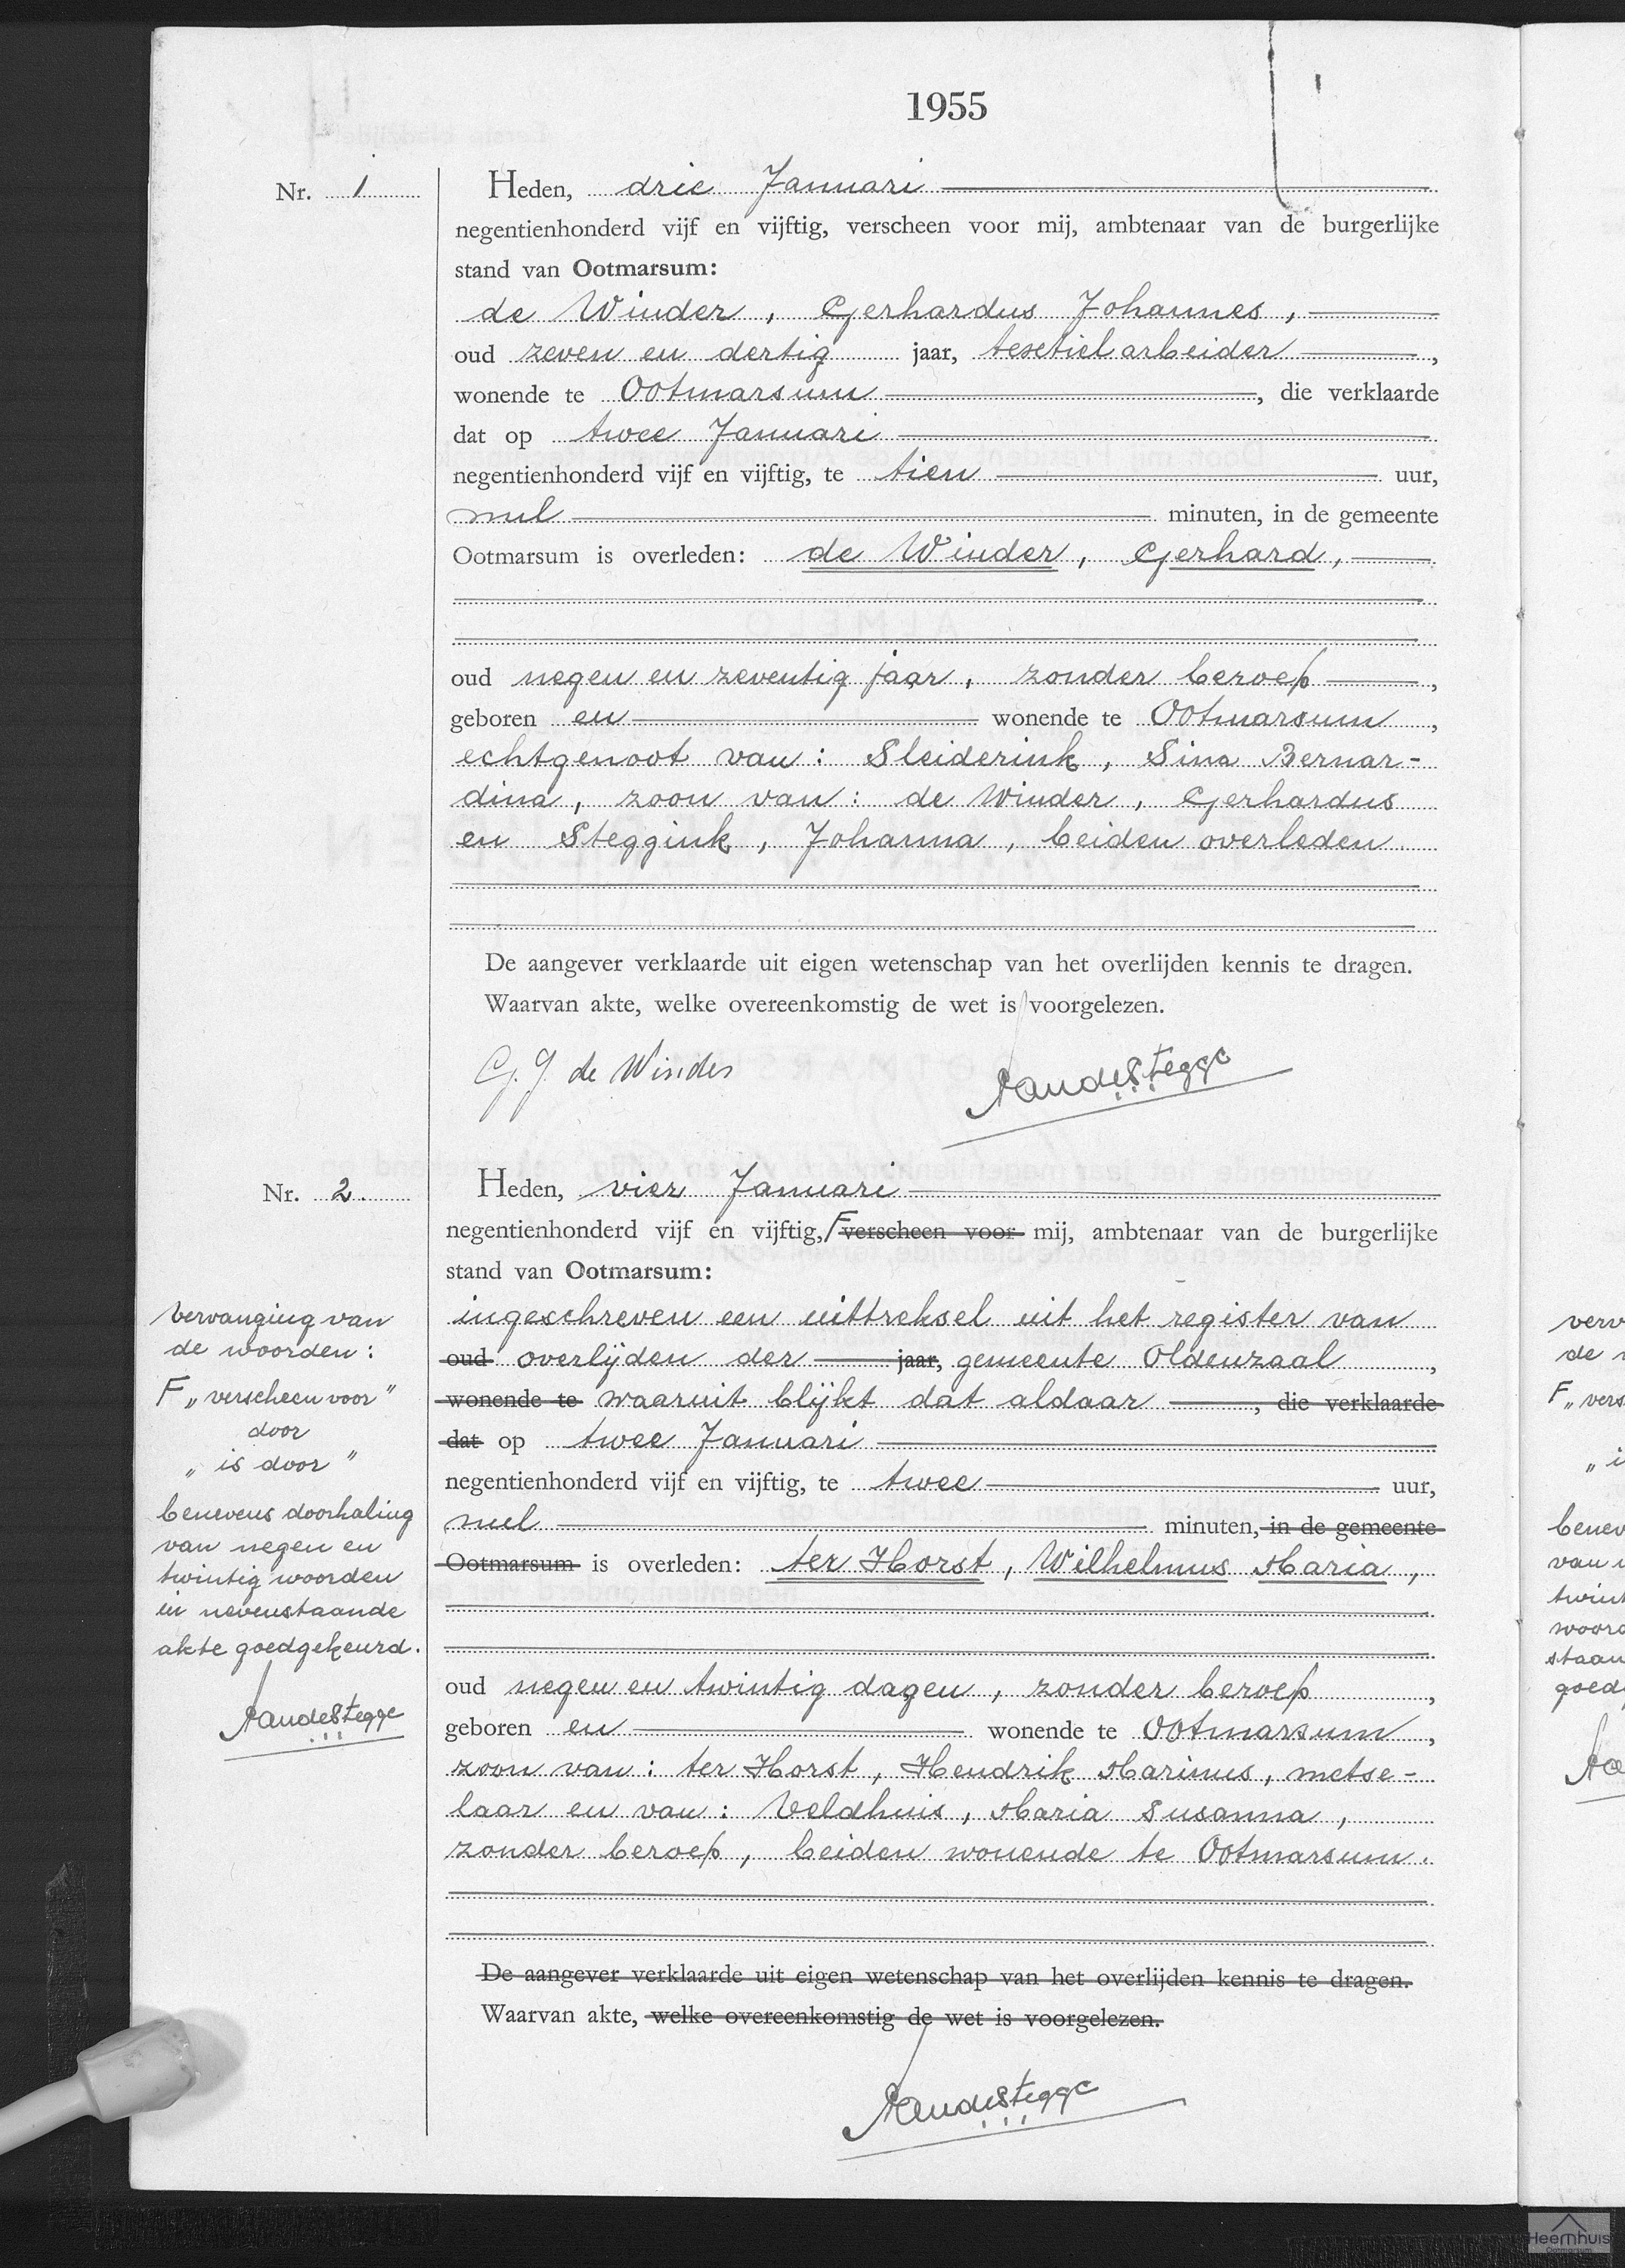 1955
Nr. 1
Heden, drie Januari
negentienhonderd vijf en vijftig, verscheen voor mij, ambtenaar van de burgerlijke
stand van Ootmarsum:
de Winder, Gerhardus Johannes,
oud zeven en dertig jaar, textielarbeider,
wonende te Ootmarsum, die verklaarde
dat op twee Januari
negentienhonderd vijf en vijftig, te tien uur,
nul minuten, in de gemeente
Ootmarsum is overleden: de Winder, Gerhard,
oud negen en zeventig jaar, zonder beroep,
geboren en wonende te Ootmarsum,
echtgenoot van: Sleiderink, Sina Bernar-
dina, zoon van: de Winder, Gerhardus
en Steggink, Johanna, beiden overleden.
De aangever verklaarde uit eigen wetenschap van het overlijden kennis te dragen.
Waarvan akte, welke overeenkomstig de wet is voorgelezen.
G. J. de Winder
Aandestegge
Nr. 2.
Heden, vier Januari
negentienhonderd vijf en vijftig, F verscheen voor mij, ambtenaar van de burgerlijke
stand van Ootmarsum:
ingeschreven een uittreksel uit het register van
oud overlijden der jaar, gemeente Oldenzaal,
wonende te waaruit blijkt dat aldaar, die verklaarde
dat op twee Januari
negentienhonderd vijf en vijftig, te twee uur,
nul minuten, in de gemeente
Ootmarsum is overleden: ter Horst, Wilhelmus Maria,
oud negen en twintig dagen, zonder beroep,
geboren en wonende te Ootmarsum,
zoon van: ter Horst, Hendrik Marinus, metse-
laar en van: Veldhuis, Maria Susanna,
zonder beroep, beiden wonende te Ootmarsum.
De aangever verklaarde uit eigen wetenschap van het overlijden kennis te dragen.
Waarvan akte, welke overeenkomstig de wet is voorgelezen.
Aandestegge
Vervanging van
de woorden:
F „verscheen voor"
door
„is door"
benevens doorhaling
van negen en
twintig woorden
in nevenstaande
akte goedgekeurd.
Aandestegge
verv
de
F „vers
„i
benev
van
twint
woord
staan
goed
Aa
Heemhuis
Ootmarsum